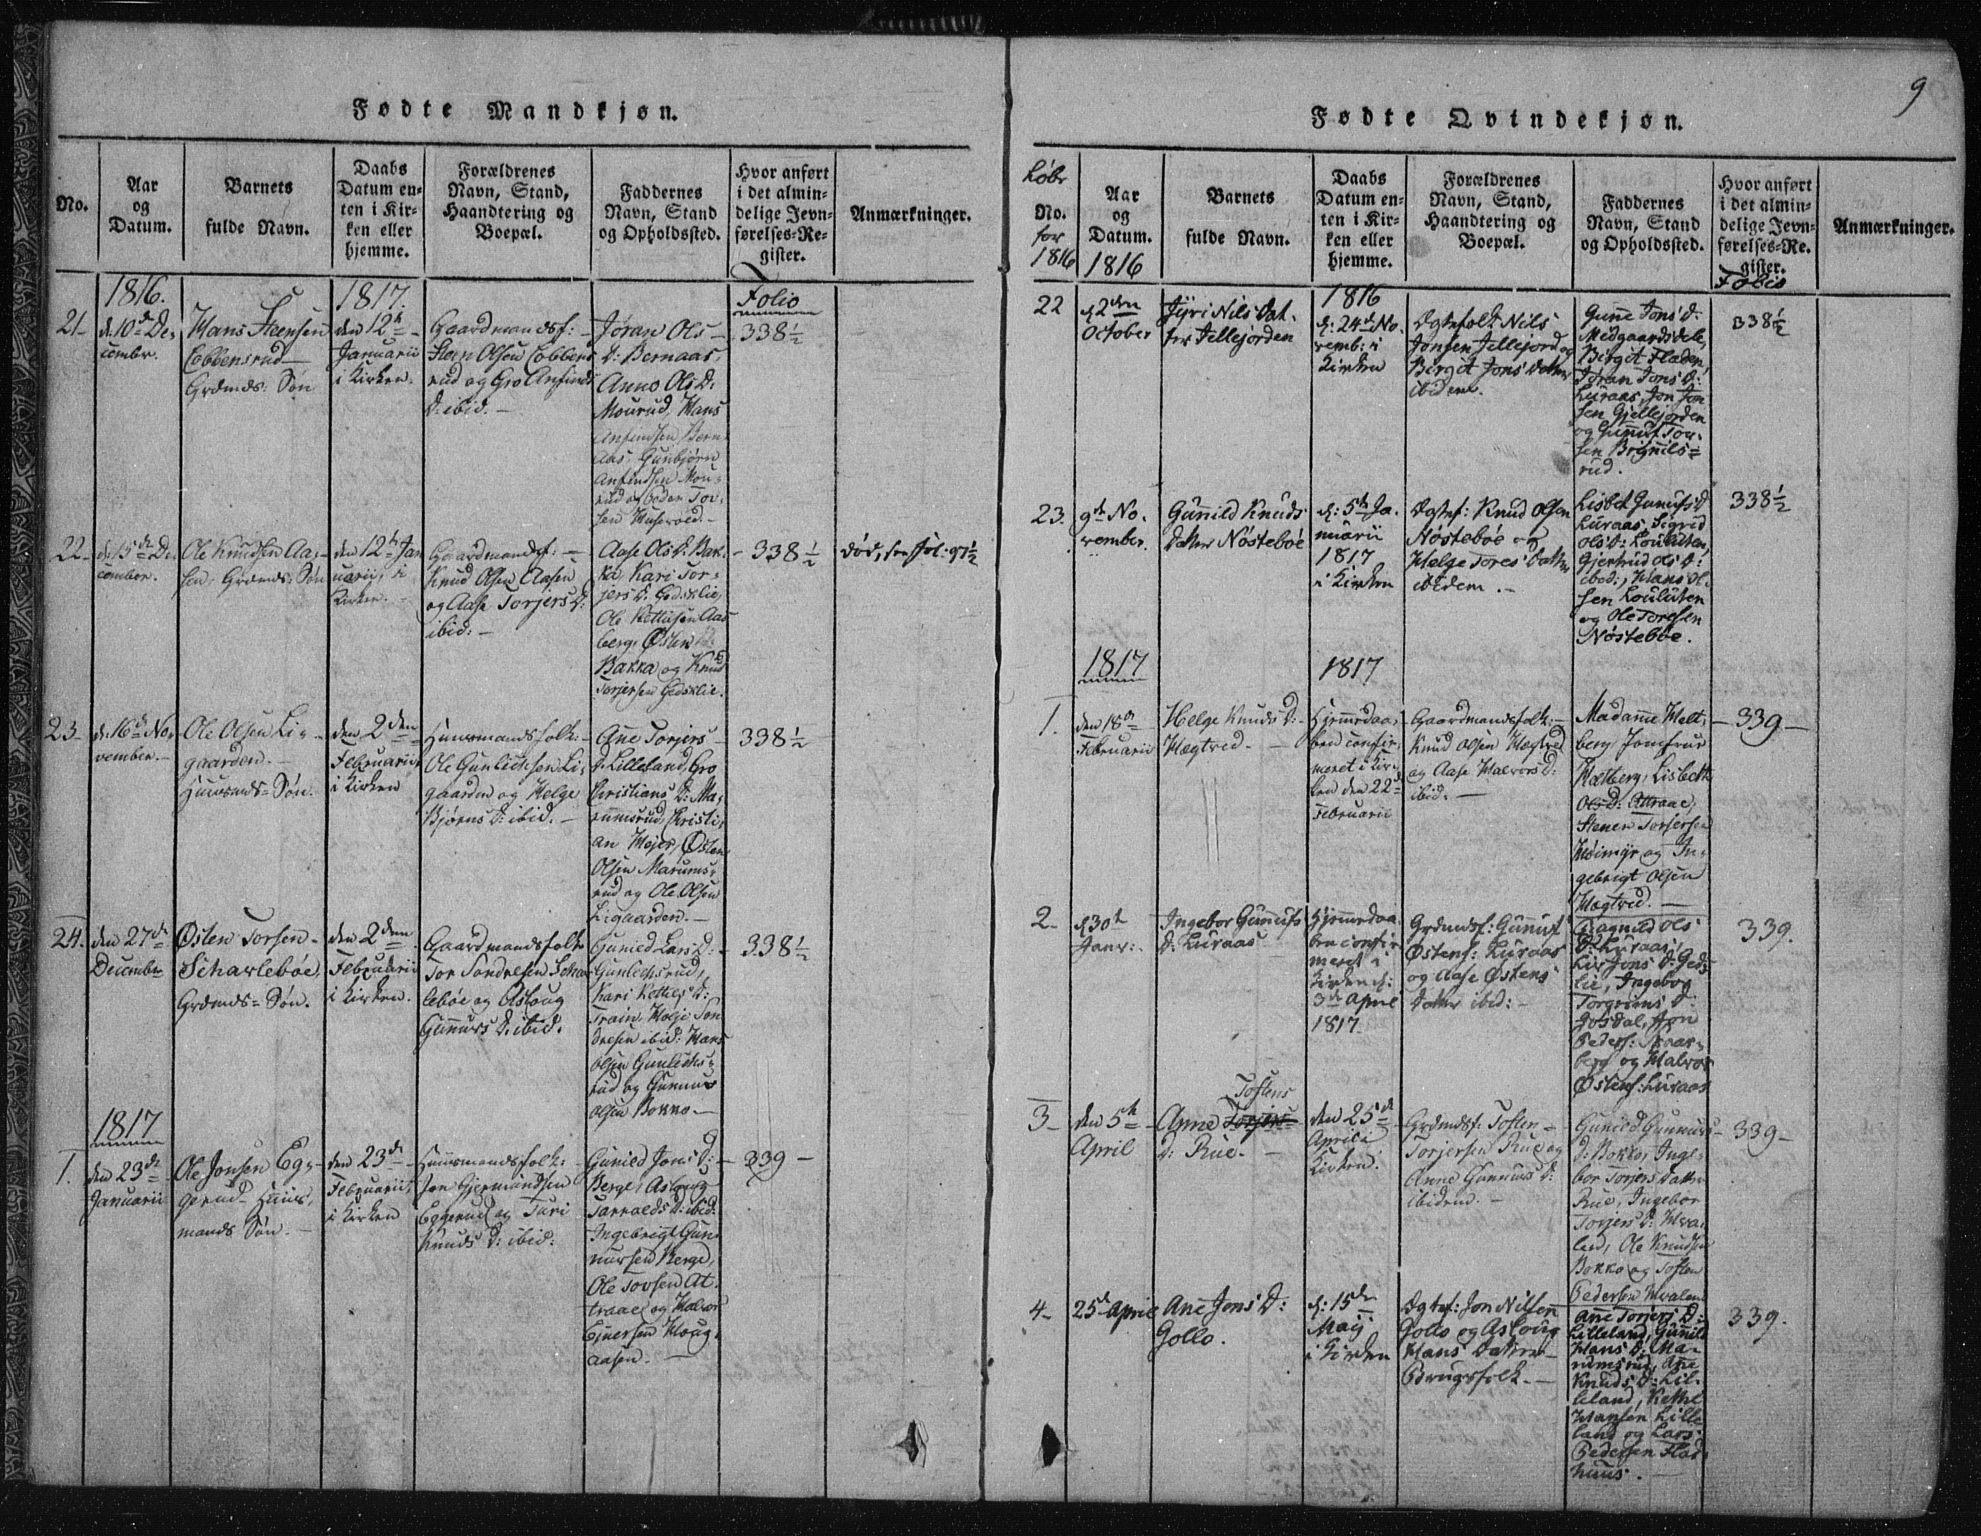 Fødte Mandkjøn.
No.
Aar
og
Datum.
Barnets
fulde Navn.
Daabs
Datum en-
ten i Kir-
ken eller
hjemme.
Forældrenes
Navn, Stand,
Haandtering og
Boepæl.
Faddernes
Navn, Stand
og Opholdssted.
Hvor anført
i det almin-
delige Jevn-
førelses-Re-
gister.
Anmærkninger.
1816.
1817.
Folio
21-
d. 10de De-
cembr.
Hans Steensen
Cobbensrud
Grdmds: Søn
den 12te
Januarii
i Kirken.
Gaardmandsf:
Steen Olsen Cobbens
rud og Gro Anfinds
D: ibid.-
Jøran Ols
D: Bernaas,
Anno Ols D:
Mourud, Hans
Anfindsen Bern
Aas, Gunbjørn
Anfindsen Mou-
rud og Tor-
sen
338½
22-
d. 15de De
cember.
Ole Knudsen Aa-
sen, Grdmds: Søn
den 12te Jan
uarii, i
Kirken.-
Gaardmandsf:-
Knud Olsen Aasen
og Aase Torjers D:
ibid:-
Aase Ols D: Bak-
ka, Kari Tor-
jers D: Gedsklie,
Ole Kettilsen Aas
berg, Østen
Bakka og Knud
Torjersen Gedsklie.
338½
død, see fol: 97½
23-
d. 16de No-
vember.-
Ole Olsen Li-
gaarden.-
Huusmds= Søn.
den 2den
Februarii
i Kirken
Huusmandsfolk:
Ole Gunlechsen Li-
gaarden og Helge
Bjørns D: ibid.-
Ane Torjers-
D: Lilleland, Gro
Christians D: Ma-
rumsrud, Christi-
an Mejer, Østen
Olsen Marums-
rud og Ole Olsen
Ligaarden.-
338½
24.
den 27de
December
Østen Torsen-
Scharlebøe,
Grdmds= Søn.
den 2den
Februarii
i Kirken.
Gaardmandsfolk
Tor Sondresen Schar
lebøe og Asloug
Gunnurs D: ibid.
Gunild Lars D:
Gunlechsrud,
Kari Kettils D:
Train, Holje Son
dresen ibid: Hans
Olsen Gunlechs-
rud og Gunnur
Olsen Bokko-
338½
1817
1.
den 23de
Januarii
Ole Jonsen Eg-
gerud Huus-
mands Søn.-
den 23de
Februarii,
i Kirken
Huusmandsfolk:
Jon Gjermundsen
Eggerud og Turi
Knuds D: ibid:
Gunild Jons D:
Berge, Asloug
Tarralds D: ibid.
Ingebrigt Gun
nursen Berge,
Ole Torsen At-
traae og Halvor
Ejnersen Houg-
aasen.-
339-
9
Fødte Qvindekjøn.
Løbe
No.
for
1816
Aar
og
Datum.
1816
Barnets
fulde Navn.
Daabs
Datum en-
ten i Kir-
ken eller
hjemme.
1816
Forældrenes
Navn, Stand,
Haandtering og
Boepæl.
Faddernes
Navn, Stand
og Opholdssted.
Hvor anført
i det almin-
delige Jevn-
førelses-Re-
gister.
Folio
Anmærkninger.
22
d. 2den
October
Jÿri Nils Dat-
ter Jellejorden
d: 24de No-
vemb: i
Kirken
Ægtefolk Nils
Jonsen Jellejord og
Birgit Jons Datter
ibidem.
Gune Jons D:
Midgaardsdele,
Birgit Fladen,
Jøran Jons D:
Luraas, Jon Jon
sen Gjellejorden
og Gunuf Tor-
sen Brignils=
rud.
338½
23.
9de No-
vember.
Gunild Knuds
Datter Nøstebøe
d: 5te Ja-
nuarii
1817
i Kirken
Ægtef: Knud Olsen
Nøstebøe og
Helge Tores Datter
ibidem.-
Lisbet Gunufs D
Luraas, Sigrid
Ols D: Louluten,
Gjertrud Ols D:
ibid:, Hans Ol-
sen Louluten
og Ole Toresen
Nøstebøe.
338½
1817
1817
1.
den 18de
Februarii
Helge Knuds D:-
Hegtved.-
Hjemmedaa-
ben confir-
meret i Kir-
ken den 22de
Februarii
Gaardmandsfolk:-
Knud Olsen Hegtved
og Aase Halvors D:
ibid.-
Madame Helt-
berg Jomfrue
Heltberg, Lisbeth
Ols D: Attraae,
Stener Torjersen
Høimÿr og In-
gebrigt Olsen
Hegtved.-
339-
2-
d. 30te
Janr:.
Ingebor Gunufs
D: Luraas
Hjemmedaa-
ben confir-
meret i
Kirken d:
3de April
1817.
Grdmdsf: Gunuf
Østens: Luraas
og Aase Østens
Datter ibid:-
Ragnild Ols
D: Luraas,
Liv Jons D: Geds
lie, Ingebog
Torgrims D:
Gosdal, Jon
Peders: Skaar-
berg og Halvor
Østens: Luraas
339.
3-
den 5te
April
Tostens
Anne Torjers
D: Rue.-
den 25de
April i
Kirken.
Grdmdsf: Tosten-
Torjersen Rue og
Anne Gunnurs D:
ibidem.-
Gunild Gunnurs
D: Bokko, Inge-
bor Torjers Datter
Rue, Ingebor
Torjers D: Hva-
len, Ole Knudsen
Bokko og Tosten
Pedersen Hvalen
339-
4-
25de April
Ane Jons D:
Gollo.
d: 15de
Maÿ
i Kirken
Ægtef: Jon Nilsen
Gollo og Asloug
Hans Datter
Brugsfolk.-
Ane Torjers D:
Lilleland, Gunild
Hans D: Ma-
rumsrud, Ane
Knuds D: Lil-
leland, Kettil
Hansen Lille
land og Lars
Pedersen Flat-
huus.-
339.